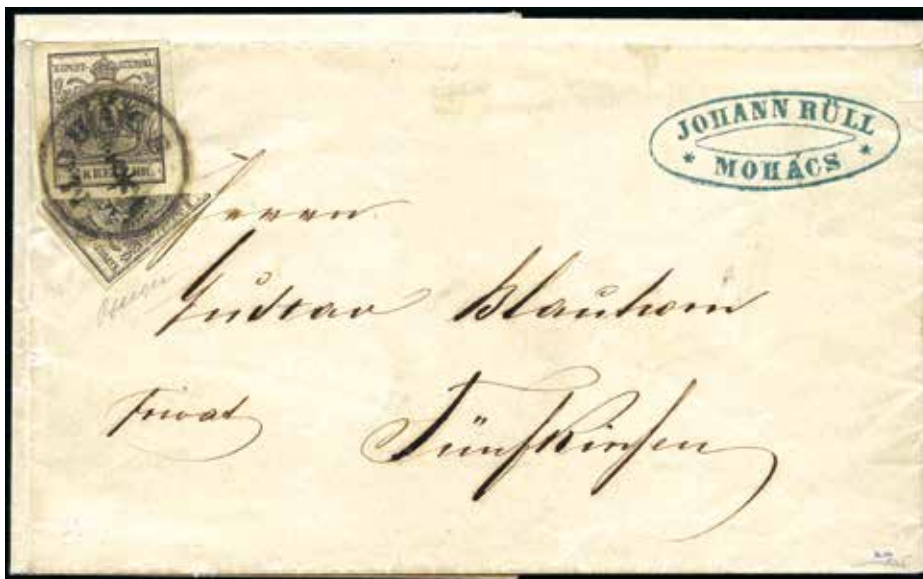 JOHANN RÜLL
* MOHÁCS *
KREUZER
MOHÁCS
Herrn
Gustav Blauhorn
Privat
Fünfkirchen